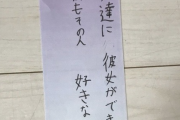 達に 彼女ができ
もその人 好きな